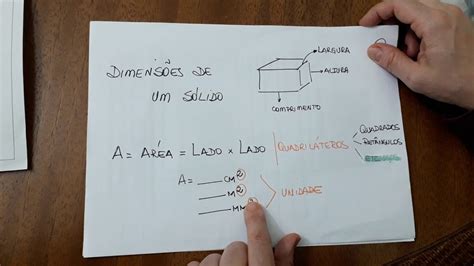 DIMENSÕES DE
UM SÓLIDO
LARGURA
ALTURA
COMPRIMENTO
A = ÁREA = LADO x LADO
QUADRILÁTEROS
QUADRADOS
RETÂNGULOS
A = ____ CM²
____ M²
____ MM²
UNIDADE